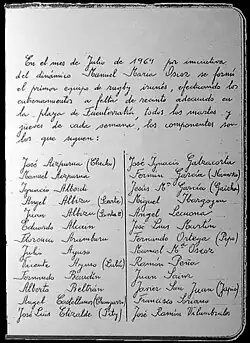 En el mes de Julio de 1964 por iniciativa
del dinámico Manuel María Oscoz se formó
el primer equipo de rugby irunés, efectuando los
entrenamientos a falta de recinto adecuado en
la plaza de Fuenterrabía todos los martes y
jueves de cada semana, los componentes son
los que siguen:
José Aizpurua (Chechu)
Manuel Aizpurua
Ignacio Alberdi
Angel Albizu
Juan Albizu
Eduardo Alcain
Florencio Aramburu
Julio Ayuso
Vicente Ayuso
Fernando
Alberto Beltrán
Angel Castellanos
José Luis Elizalde (Pity)
José Ignacio
Fermín García (Navarro)
Jesús Mª García
Miguel Ibargoyen
Angel Lecuona
José Luis Martín
Fernando Ortega (Pepe)
Manuel Mª Oscoz
Ramón Peña
Juan
Javier San Juan
Francisco Soriano
José Ramón